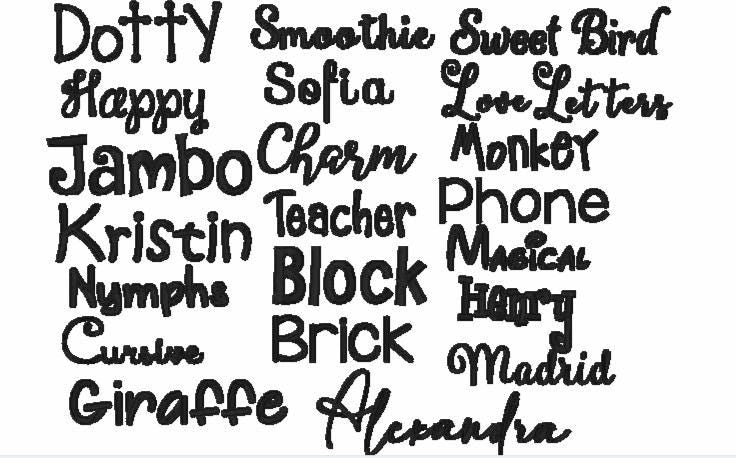 Dotty
Happy
Jambo
Kristin
Nymphs
Cursive
Giraffe
Smoothie
Sofia
Charm
Teacher
Block
Brick
Alexandra
Sweet Bird
Love Letters
Monkey
Phone
Magical
Henry
Madrid